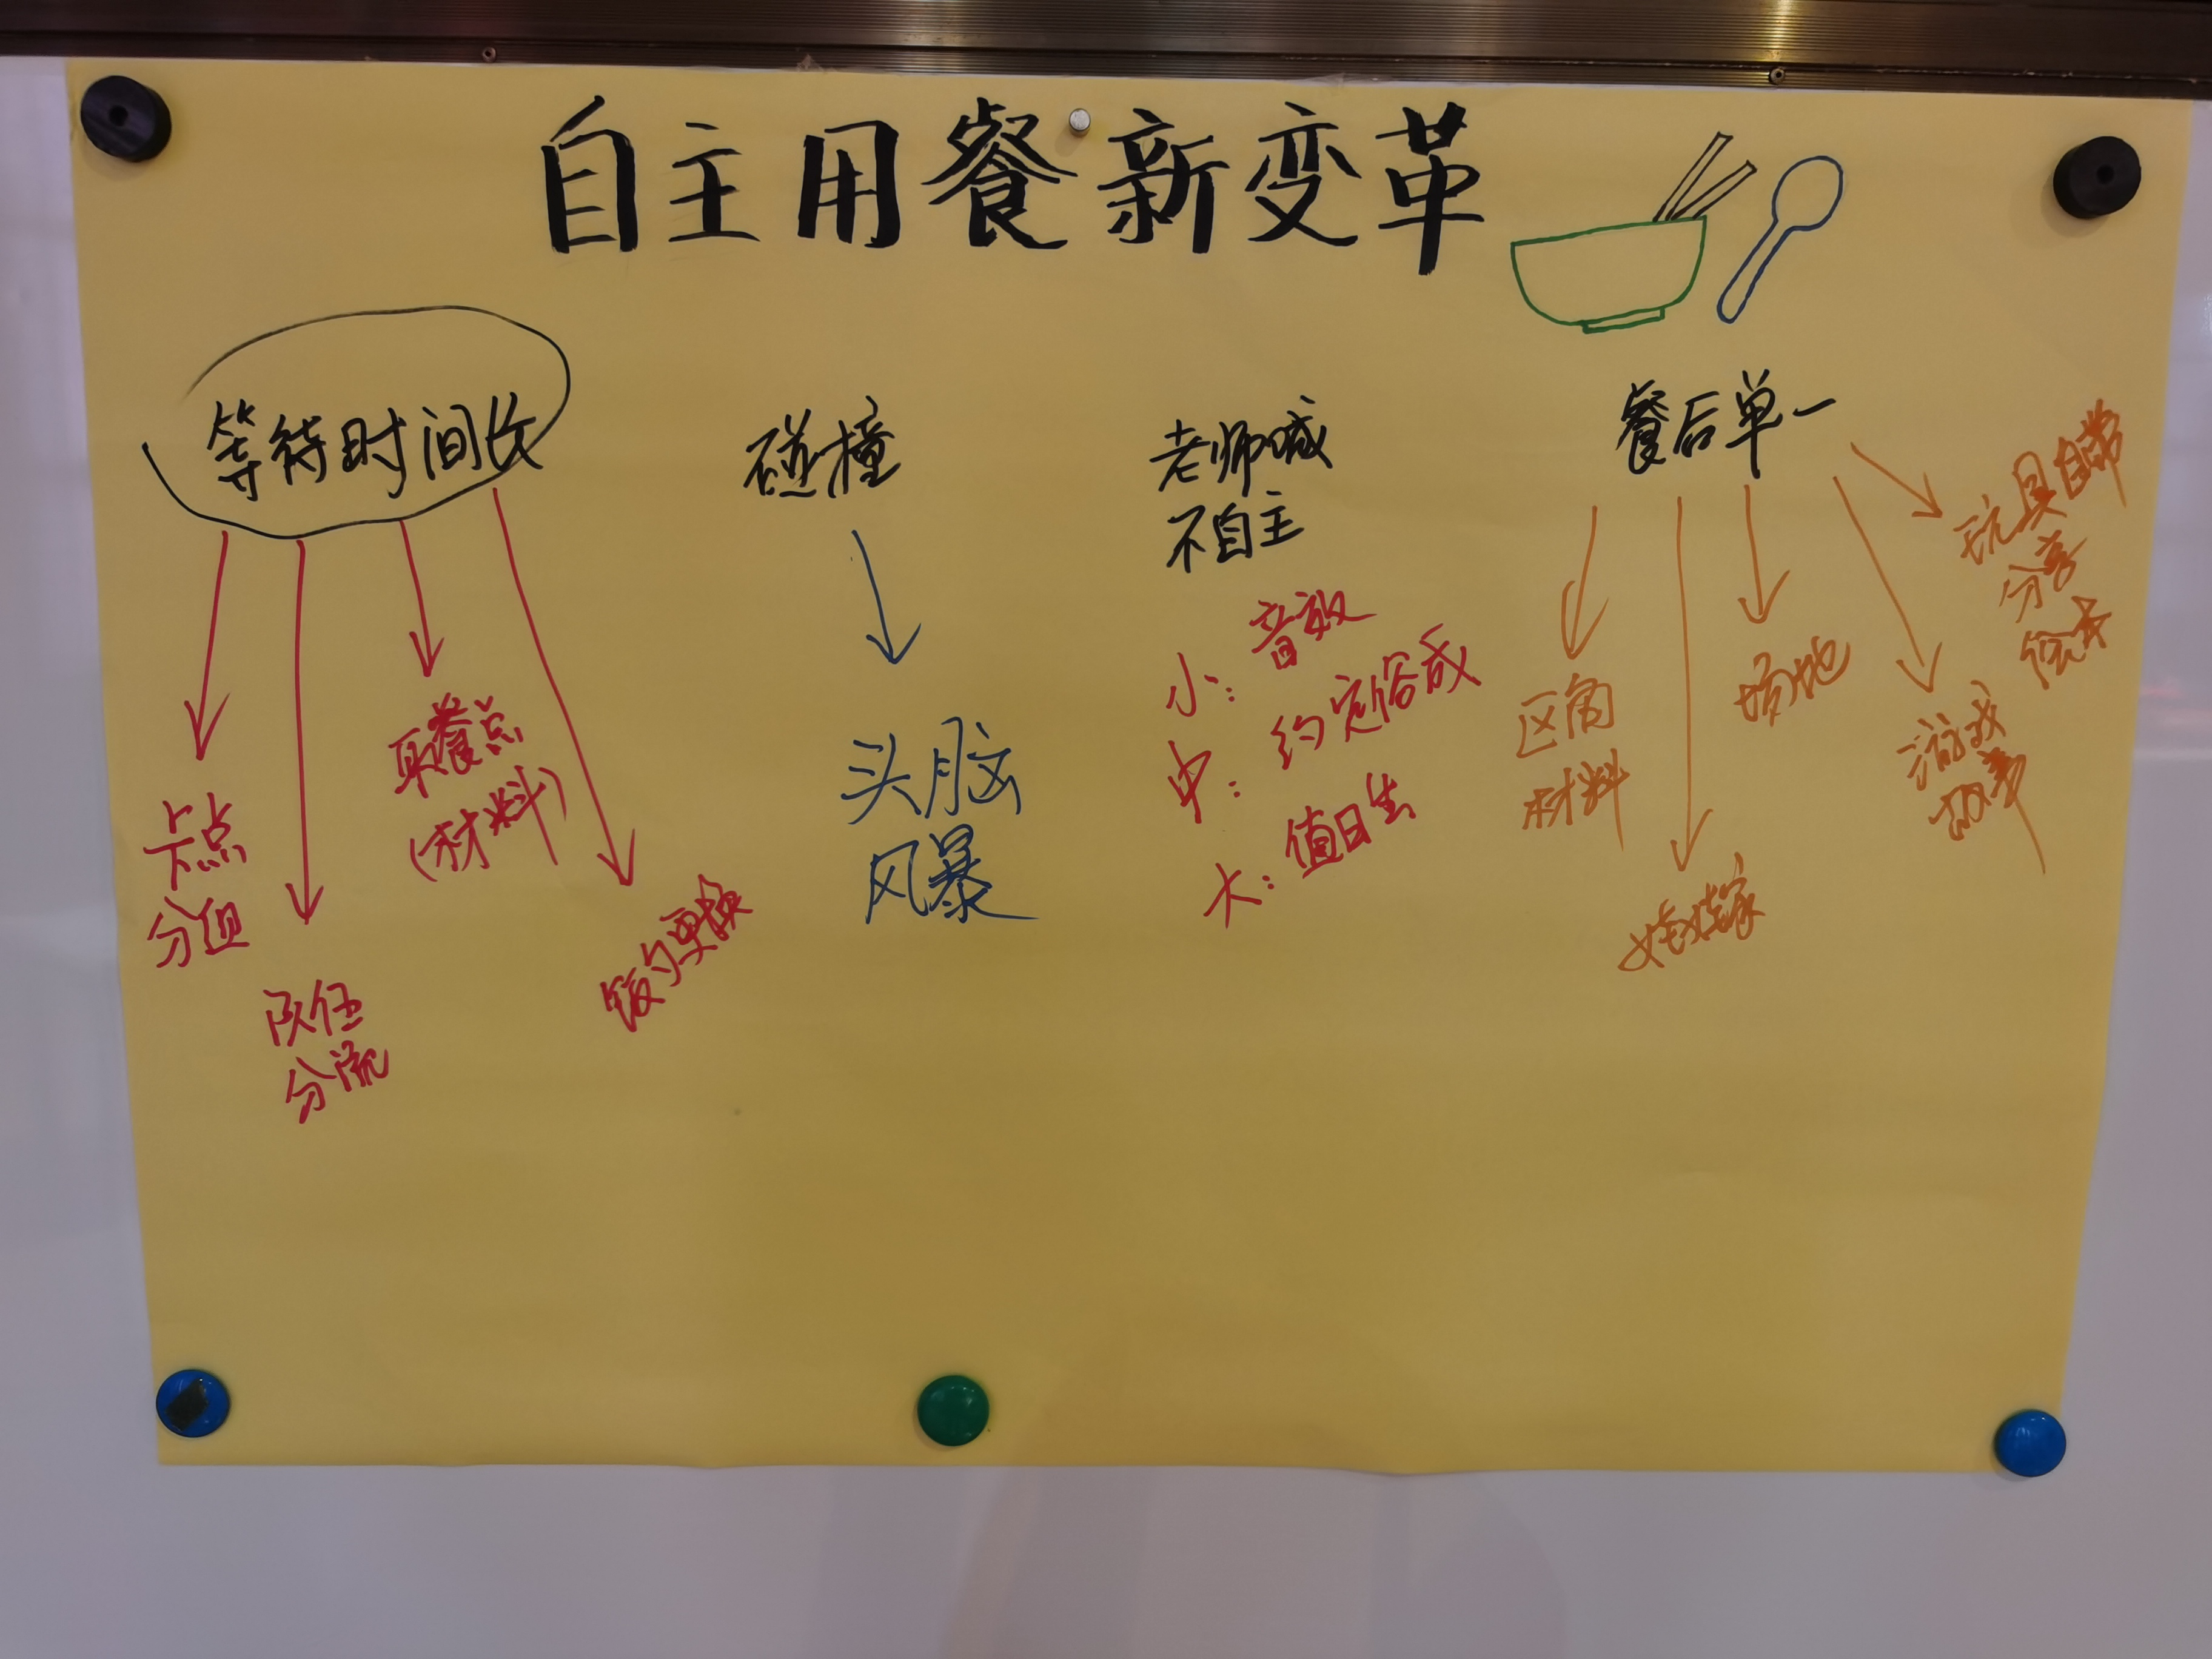 自主用餐新变革
等待时间长
卡点
分组
队伍
分流
取餐点
(材料)
饭勺更换
碰撞
头脑
风暴
老师喊
不自主
小: 音效
中: 约定俗成
大: 值日生
餐后单一
区角
材料
娃娃家
场地
游戏
故事
玩具自带
分享